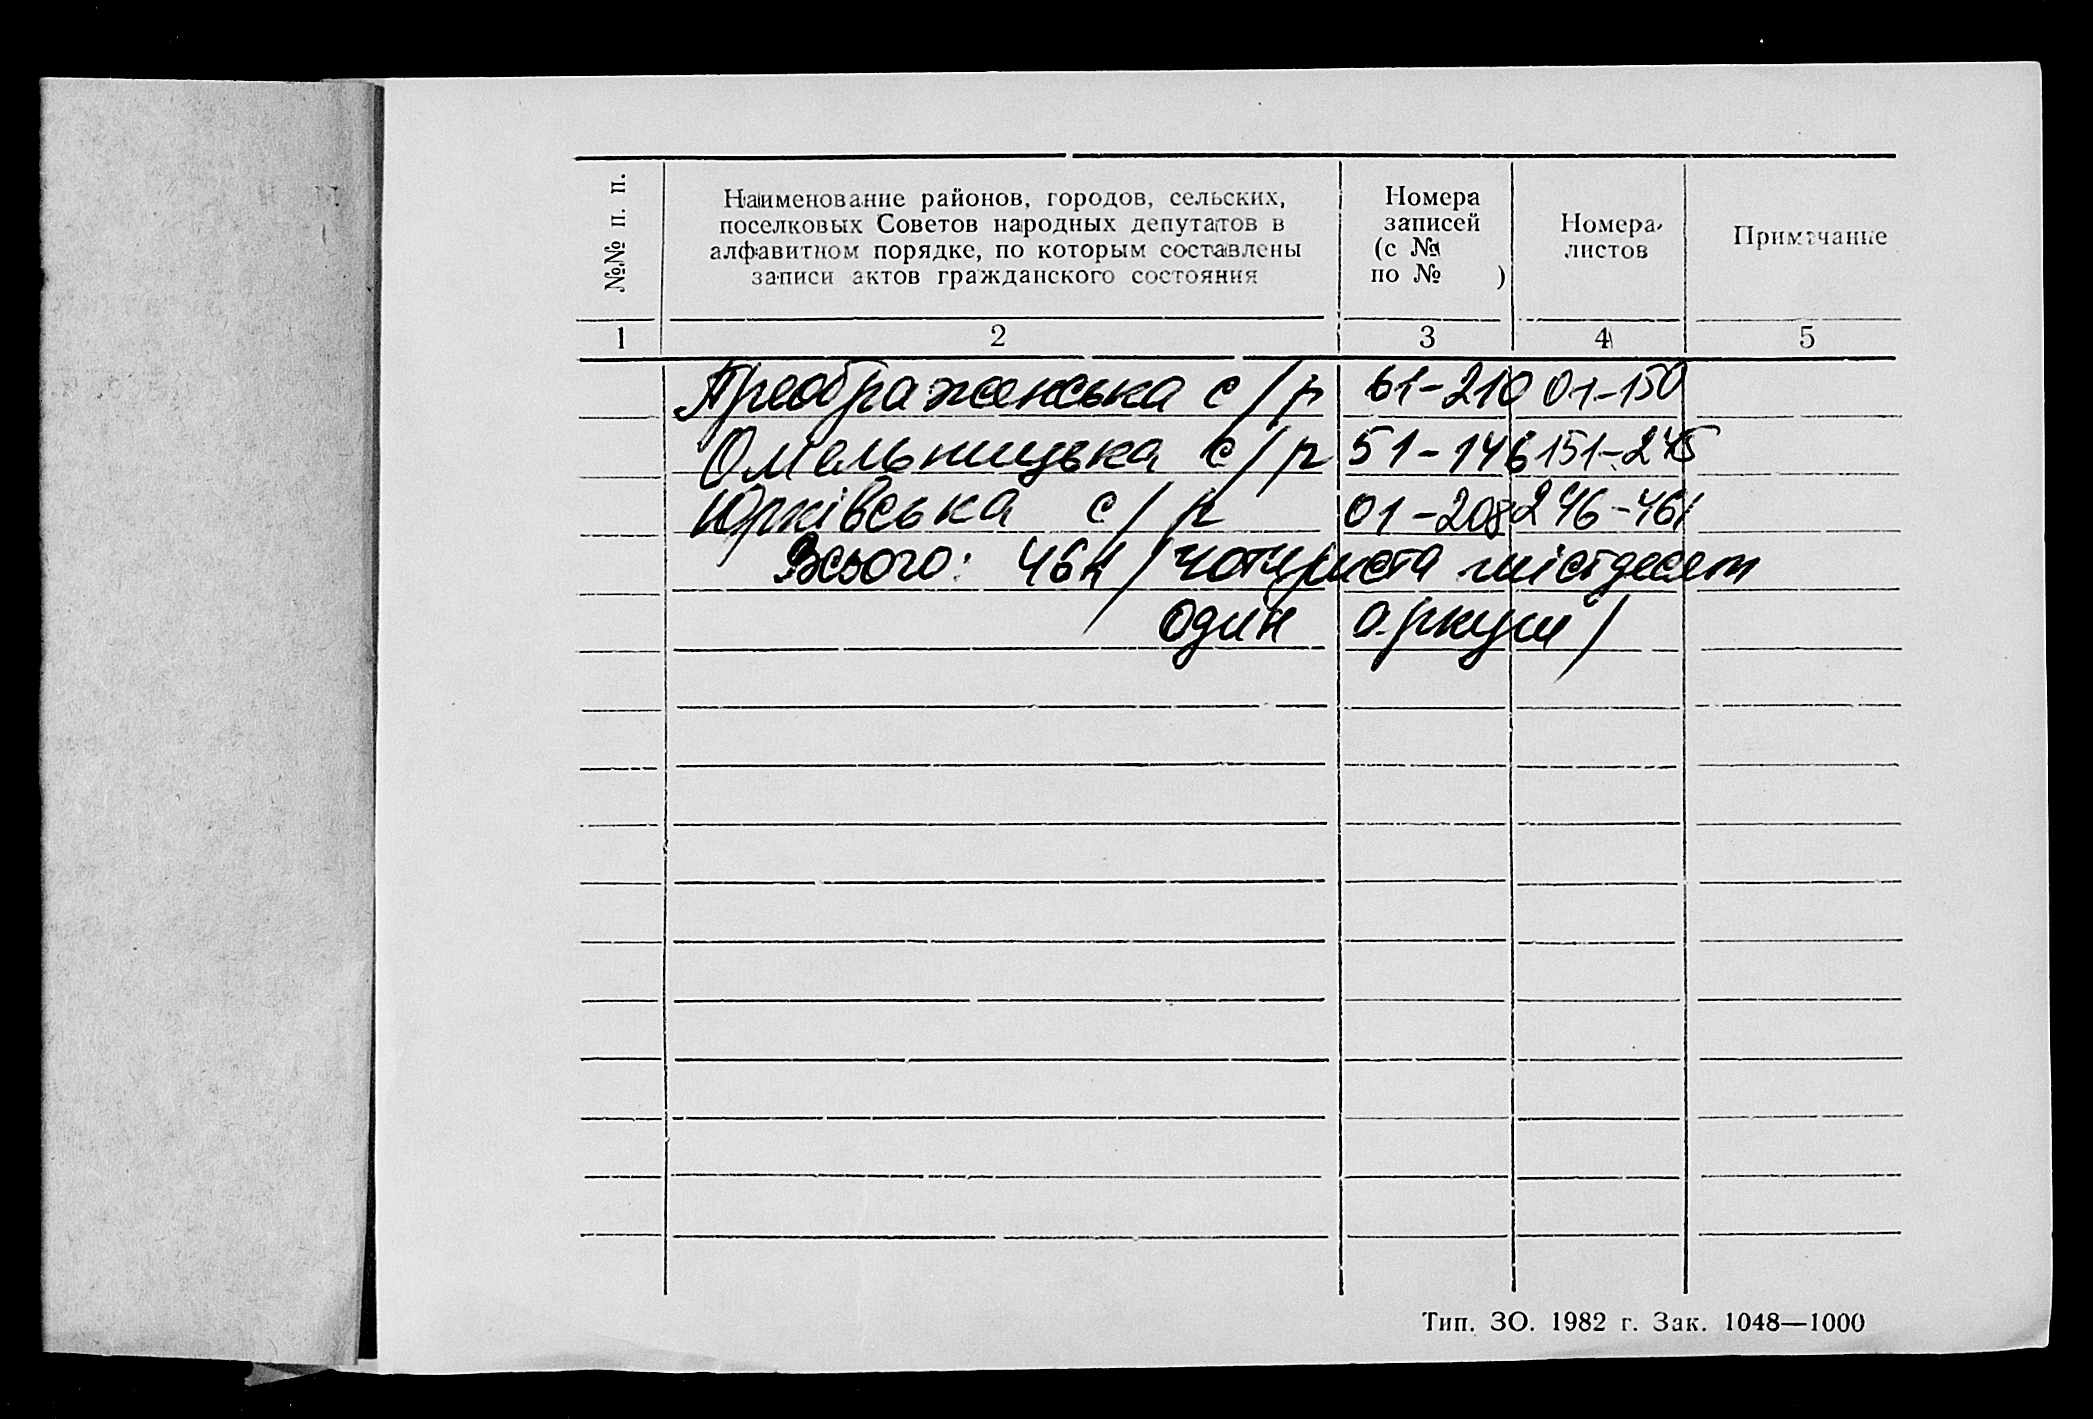 №№ п. п.
Наименование районов, городов, сельских,
поселковых Советов народных депутатов в
алфавитном порядке, по которым составлены
записи актов гражданского состояния
Номера
записей
(с №
по № )
Номера
листов
Примечание
1 2 3 4 5
Преображенська с/р 61-210 01-150
Омельницька с/р 51-146 151-245
Юрківська с/р 01-208 246-461
Всього: 461 /чотириста шістдесят
один аркуш/
Тип. ЗО. 1982 г. Зак. 1048—1000